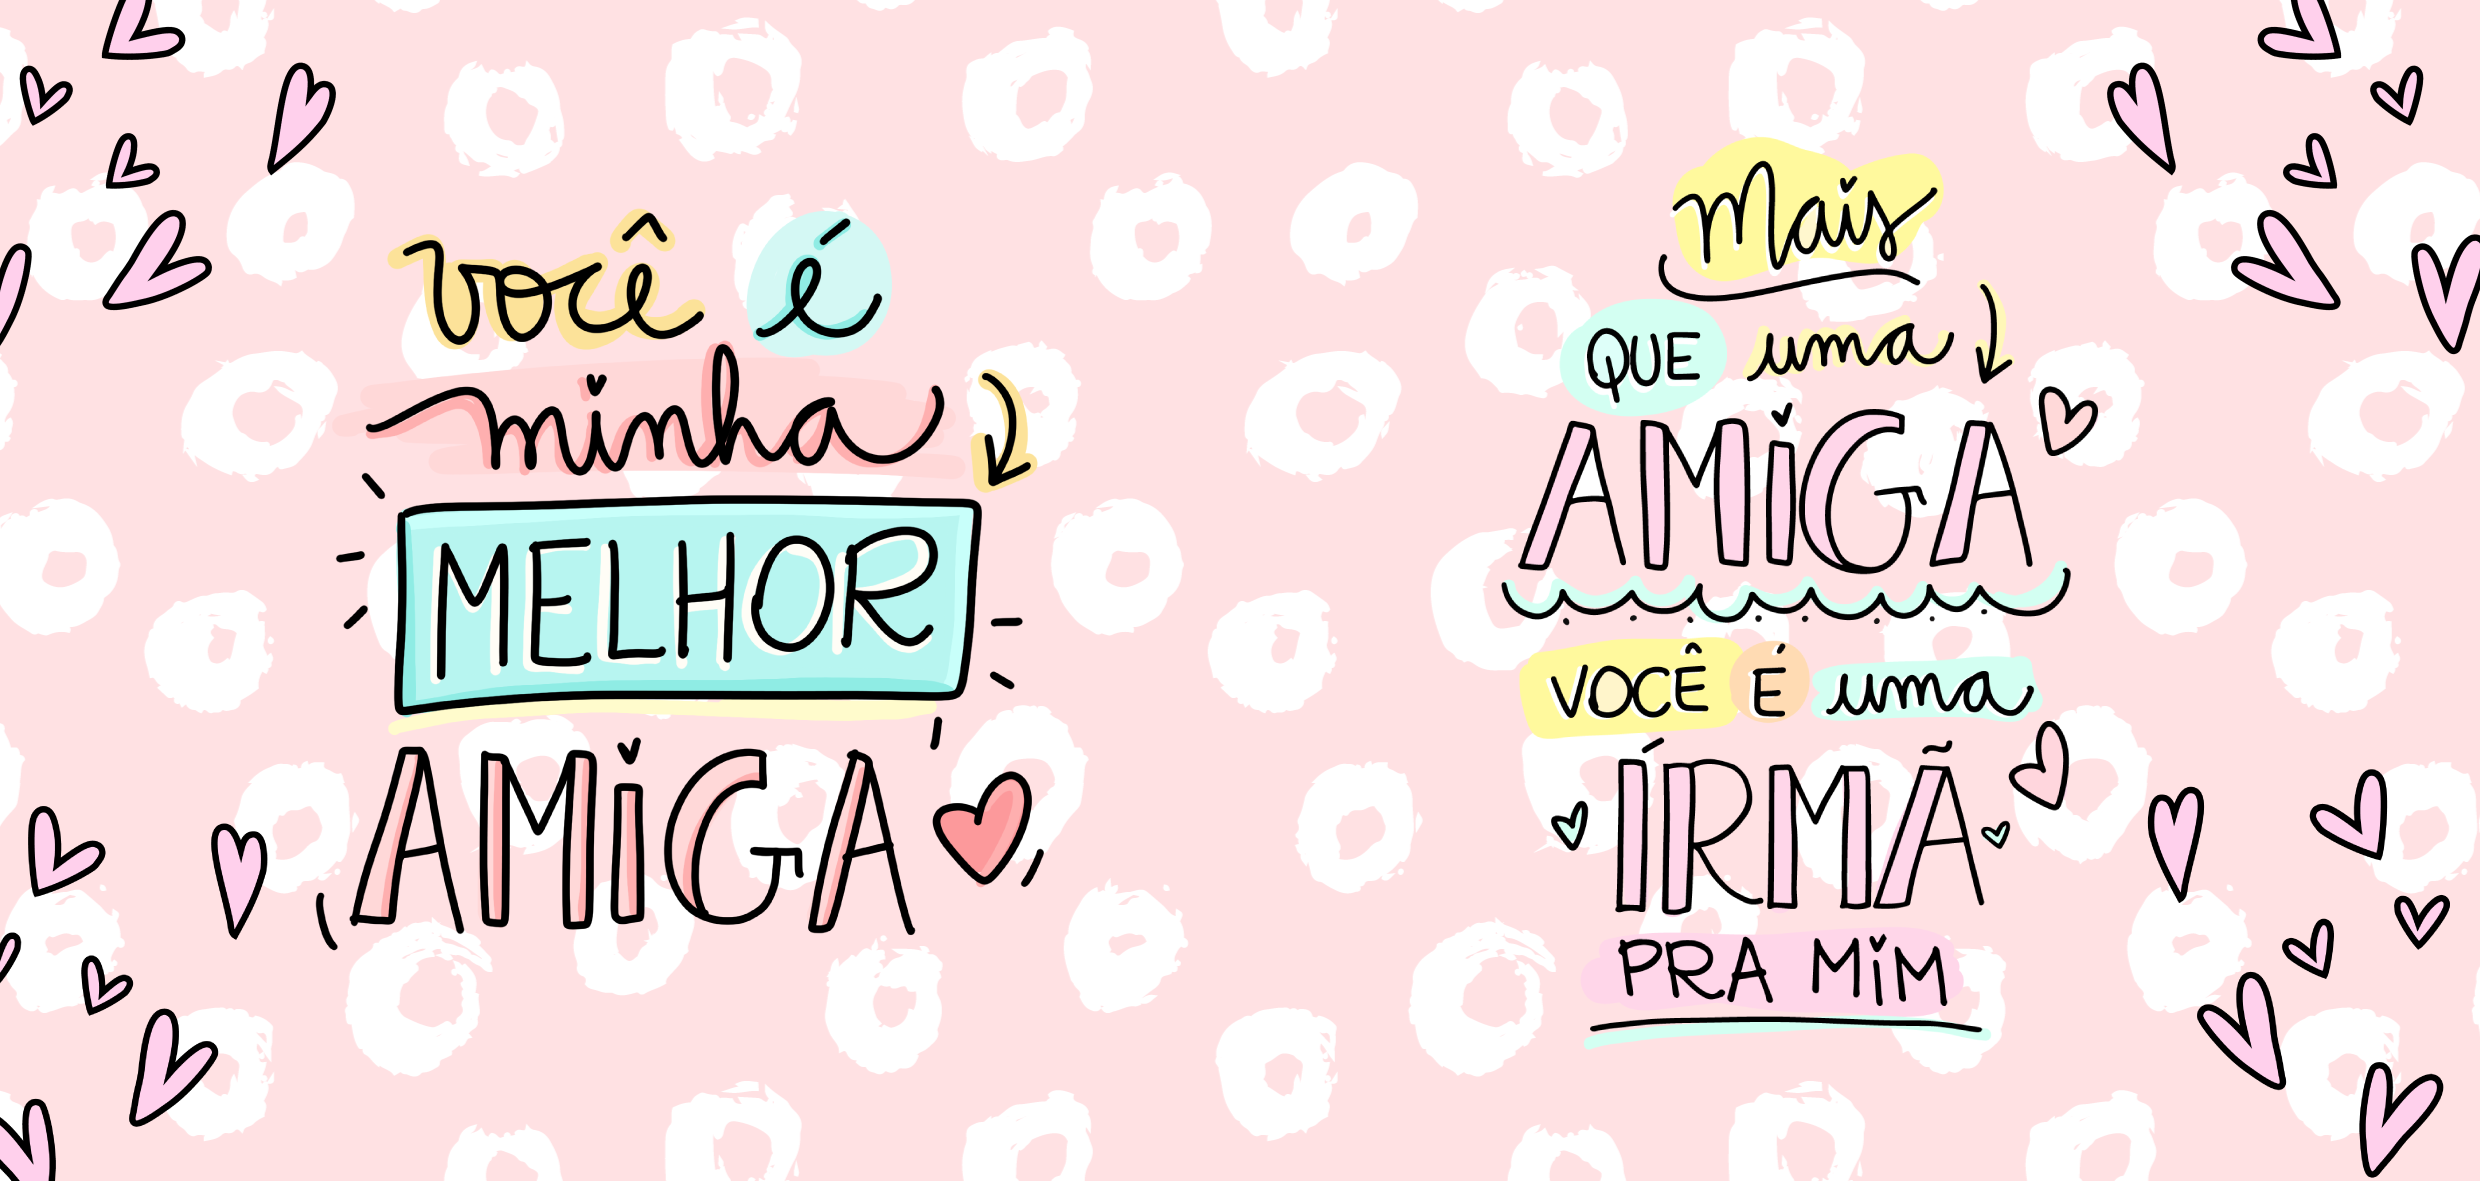 você é
minha
MELHOR
AMiGA
Mais
QUE uma
AMiGA
VOCÊ É uma
ÍRMÃ
PRA MiM